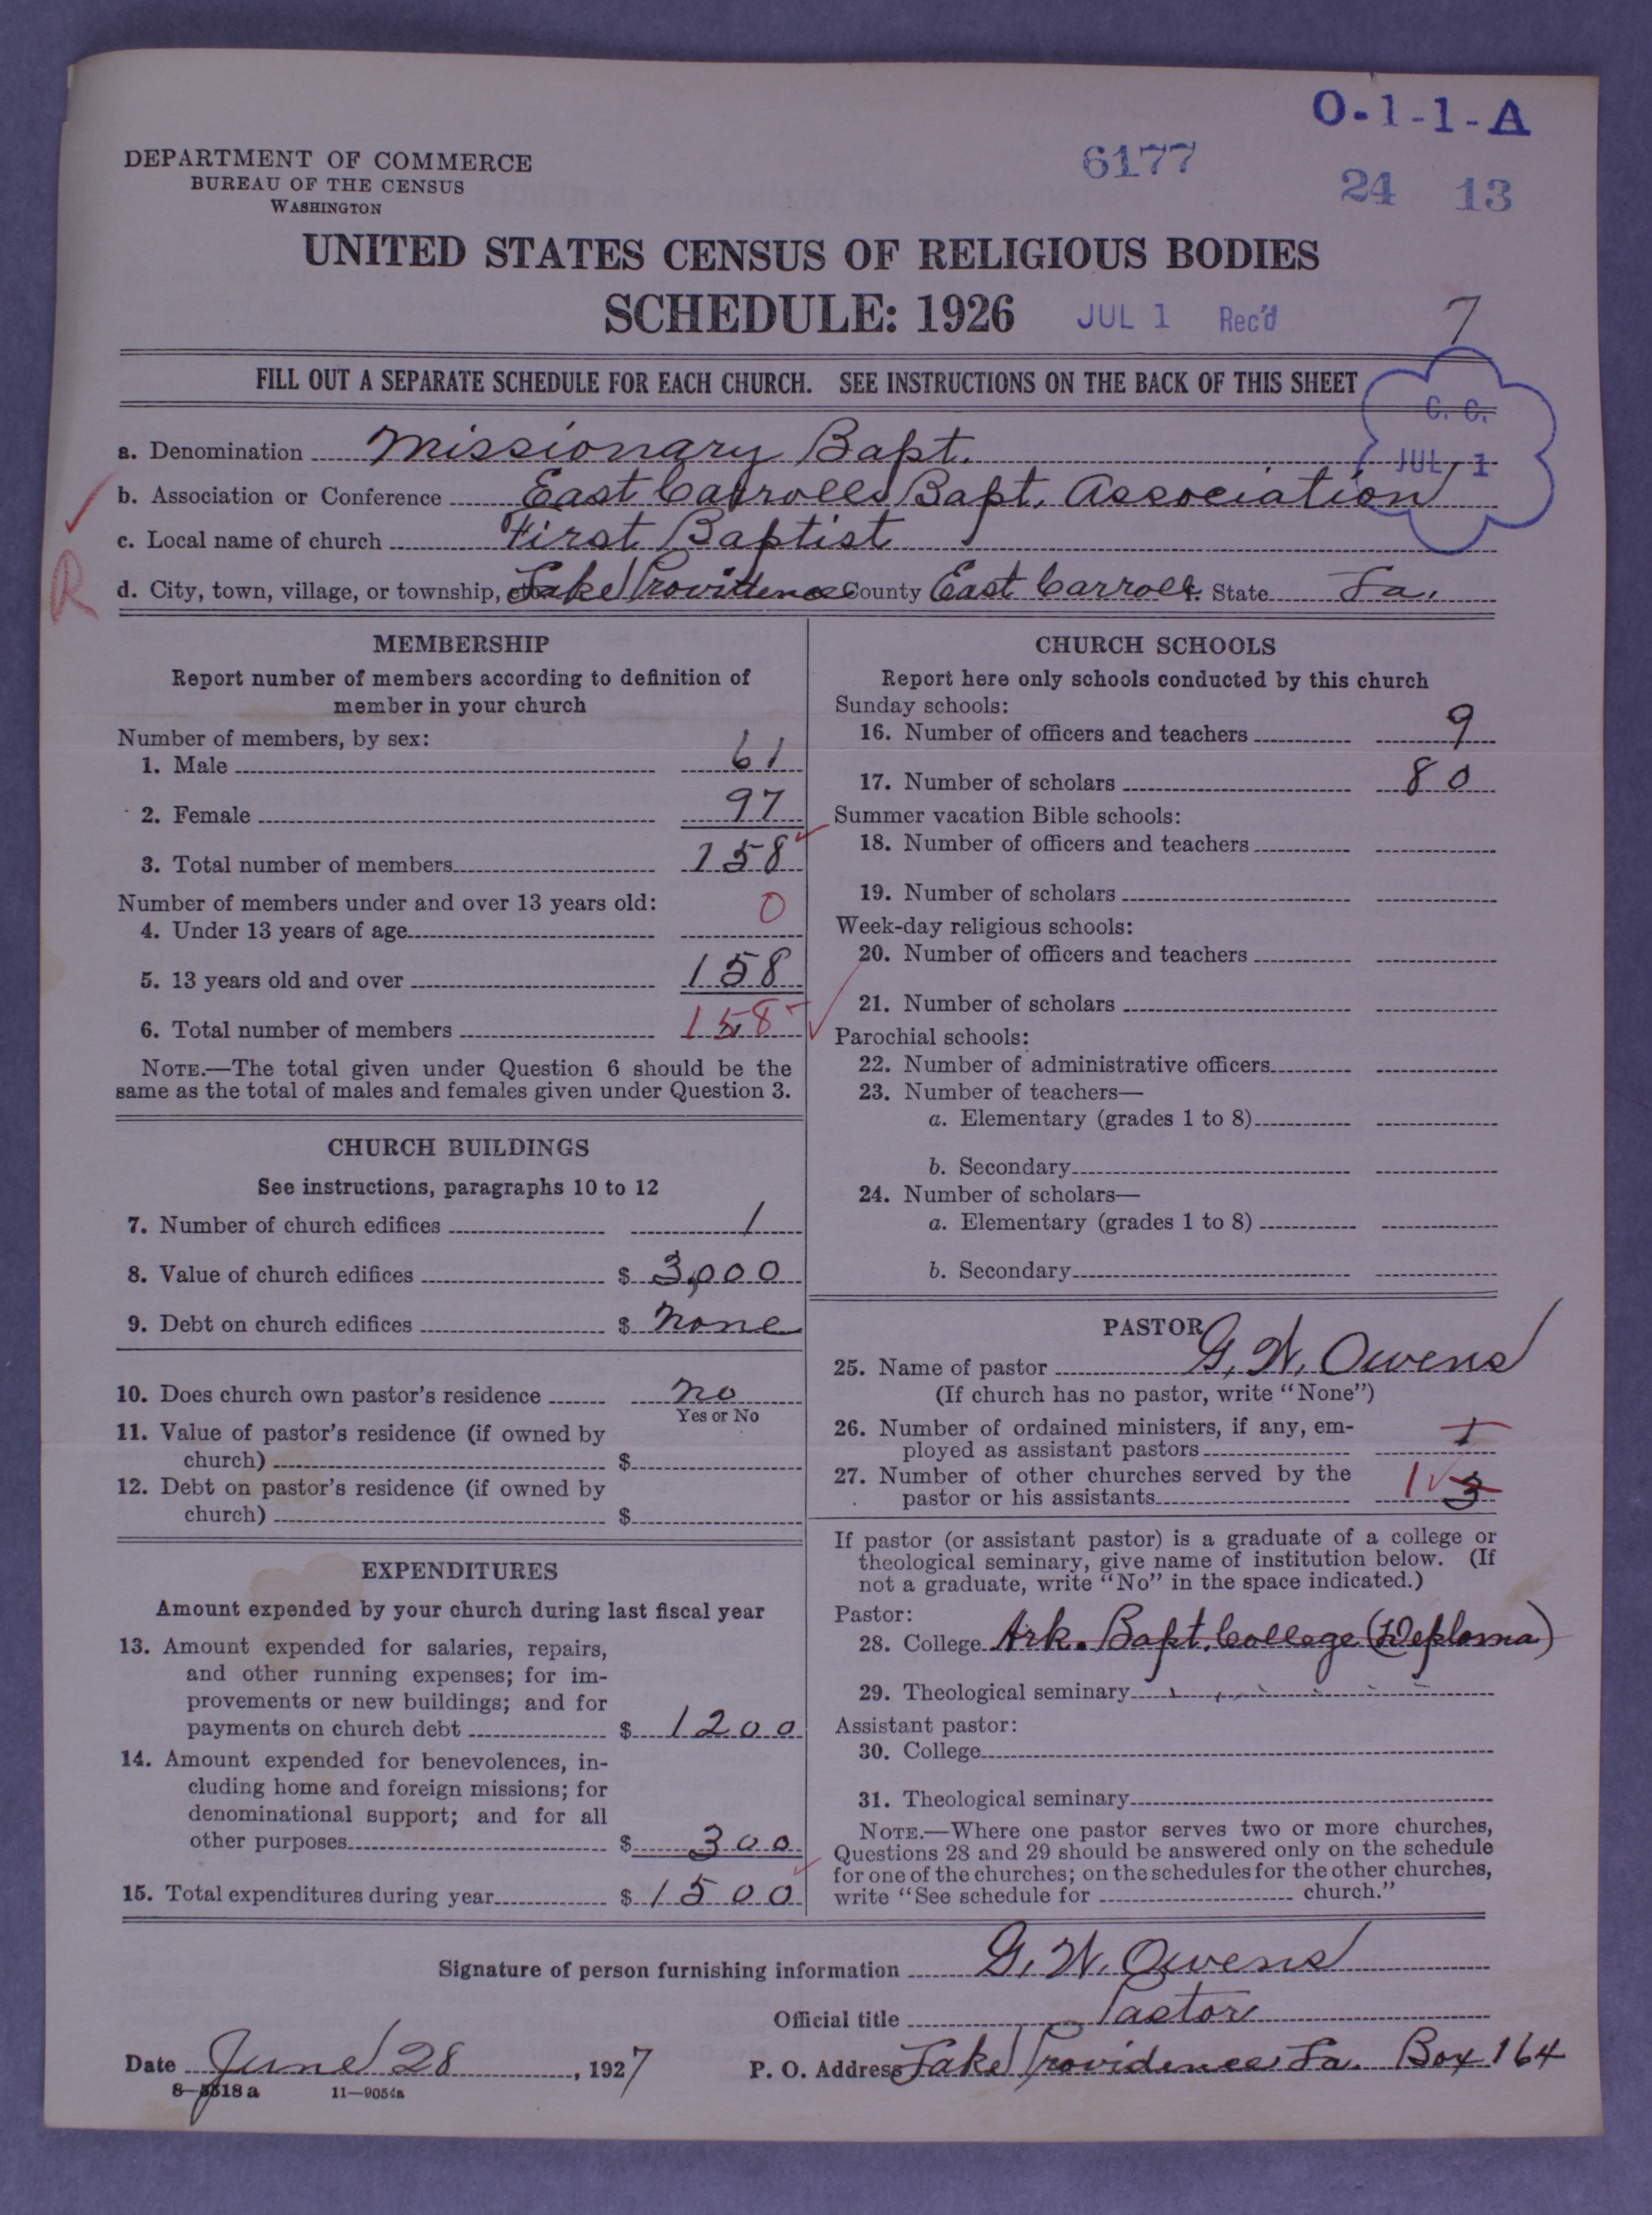 O-1-1-A
DEPARTMENT OF COMMERCE
BUREAU OF THE CENSUS
WASHINGTON
6177
24 13
UNITED STATES CENSUS OF RELIGIOUS BODIES
SCHEDULE: 1926
JUL 1 Rec'd
7
FILL OUT A SEPARATE SCHEDULE FOR EACH CHURCH. SEE INSTRUCTIONS ON THE BACK OF THIS SHEET
C. C.
JUL 1
a. Denomination Missionary Bapt.
b. Association or Conference East Carroll Bapt. Association
c. Local name of church First Baptist
R
d. City, town, village, or township, etc. Lake Providence County East Carroll State La.
MEMBERSHIP
Report number of members according to definition of
member in your church
Number of members, by sex:
1. Male 61
2. Female 97
3. Total number of members 158
Number of members under and over 13 years old:
4. Under 13 years of age 0
5. 13 years old and over 158
6. Total number of members 158
NOTE.—The total given under Question 6 should be the
same as the total of males and females given under Question 3.
CHURCH BUILDINGS
See instructions, paragraphs 10 to 12
7. Number of church edifices 1
8. Value of church edifices $ 3,000
9. Debt on church edifices $ none
10. Does church own pastor's residence no
Yes or No
11. Value of pastor's residence (if owned by
church) $
12. Debt on pastor's residence (if owned by
church) $
EXPENDITURES
Amount expended by your church during last fiscal year
13. Amount expended for salaries, repairs,
and other running expenses; for im-
provements or new buildings; and for
payments on church debt $ 1200
14. Amount expended for benevolences, in-
cluding home and foreign missions; for
denominational support; and for all
other purposes $ 300
15. Total expenditures during year $ 1500
CHURCH SCHOOLS
Report here only schools conducted by this church
Sunday schools:
16. Number of officers and teachers 9
17. Number of scholars 80
Summer vacation Bible schools:
18. Number of officers and teachers
19. Number of scholars
Week-day religious schools:
20. Number of officers and teachers
21. Number of scholars
Parochial schools:
22. Number of administrative officers
23. Number of teachers—
a. Elementary (grades 1 to 8)
b. Secondary
24. Number of scholars—
a. Elementary (grades 1 to 8)
b. Secondary
PASTOR
25. Name of pastor G. W. Owens
(If church has no pastor, write "None")
26. Number of ordained ministers, if any, em-
ployed as assistant pastors 1
27. Number of other churches served by the
pastor or his assistants 1 3
If pastor (or assistant pastor) is a graduate of a college or
theological seminary, give name of institution below. (If
not a graduate, write "No" in the space indicated.)
Pastor:
28. College Ark. Bapt. College (Deploma)
29. Theological seminary
Assistant pastor:
30. College
31. Theological seminary
NOTE.—Where one pastor serves two or more churches,
Questions 28 and 29 should be answered only on the schedule
for one of the churches; on the schedules for the other churches,
write "See schedule for church."
Signature of person furnishing information G. W. Owens
Official title Pastor
Date June 28, 1927 P. O. Address Lake Providence, La. Box 164
8—5318a 11—9054a